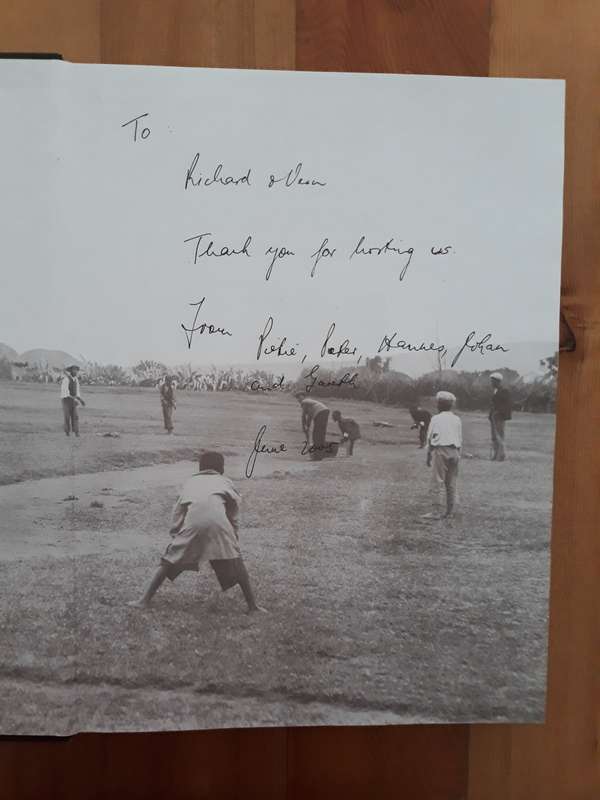 To :
Richard & Vern
Thank you for hosting us.
From Pietie, Peter, Hannes, Johan
and Gareth
June 2005